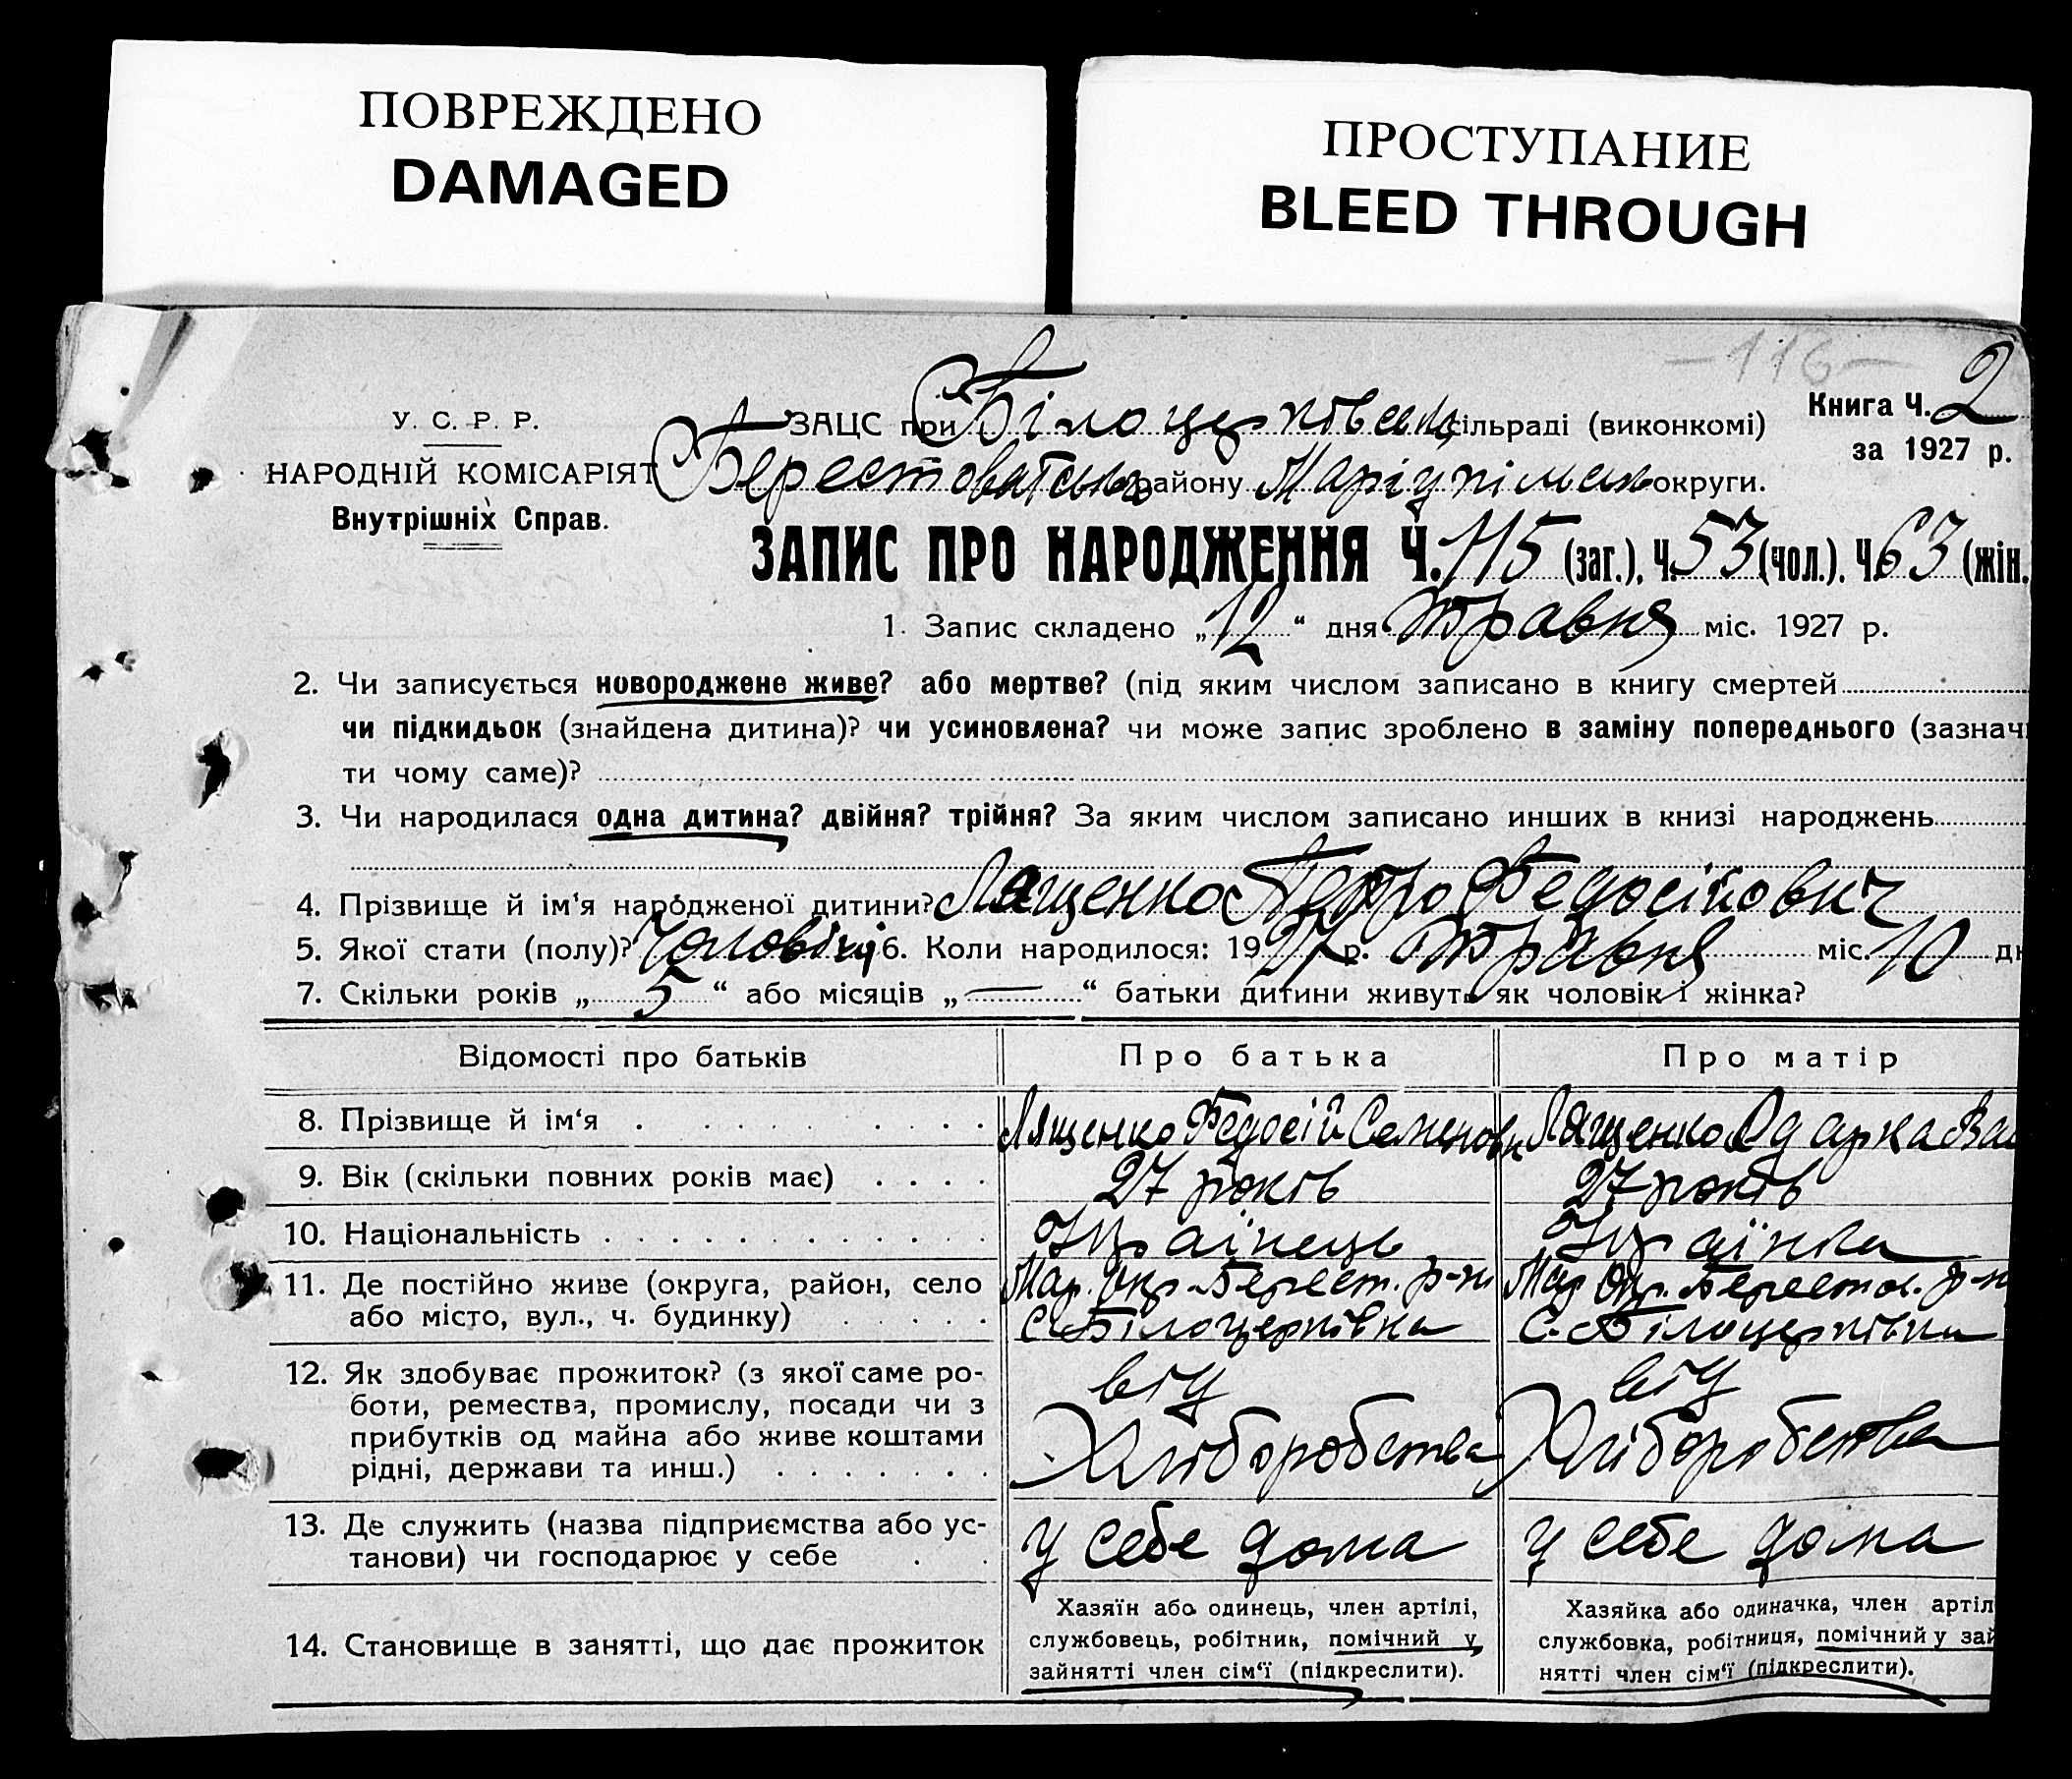 ПОВРЕЖДЕНО
DAMAGED
ПРОСТУПАНИЕ
BLEED THROUGH
-116-
Книга Ч. 2
за 1927 р.
У. С. Р. Р.
НАРОДНІЙ КОМІСАРІЯТ
Внутрішніх Справ.
ЗАЦС при Білоцерківській сільраді (виконкомі)
Берестоватськ району Маріупільськ округи.
ЗАПИС ПРО НАРОДЖЕННЯ Ч. 115 (заг.), Ч. 53 (чол.). Ч. 63 (жін.
1. Запис складено „12“ дня Травня міс. 1927 р.
2. Чи записується новороджене живе? або мертве? (під яким числом записано в книгу смертей
чи підкидьок (знайдена дитина)? чи усиновлена? чи може запис зроблено в заміну попереднього (зазначи
ти чому саме)?
3. Чи народилася одна дитина? двійня? трійня? За яким числом записано инших в книзі народжень
4. Прізвище й ім‘я народженої дитини? Лященко Петро Федосійович
5. Якої стати (полу)? Чоловічої 6. Коли народилося: 1927 р. Травня міс. 10 дн
7. Скільки років „5“ або місяців „—“ батьки дитини живуть як чоловік і жінка?
Відомості про батьків Про батька Про матір
8. Прізвище й ім‘я Лященко Федосій Семенович Лященко Одарка Вас
9. Вік (скільки повних років має) 27 років 27 років
10. Національність Українець Українка
11. Де постійно живе (округа, район, село Мар. Окр. Берест. р-н Мар. Окр. Берестов. р-н
або місто, вул., ч. будинку) с. Білоцерківка с. Білоцерківка
12. Як здобуває прожиток? (з якої саме ро- від від
боти, ремества, промислу, посади чи з
прибутків од майна або живе коштами Хліборобства Хліборобства
рідні, держави та инш.)
13. Де служить (назва підприємства або ус- у себе дома у себе дома
танови) чи господарює у себе
14. Становище в занятті, що дає прожиток
Хазяїн або одинець, член артілі,
службовець, робітник, помічний у
зайнятті член сім‘ї (підкреслити).
Хазяйка або одиначка, член артіл
службовка, робітниця, помічний у зай
нятті член сім‘ї (підкреслити).